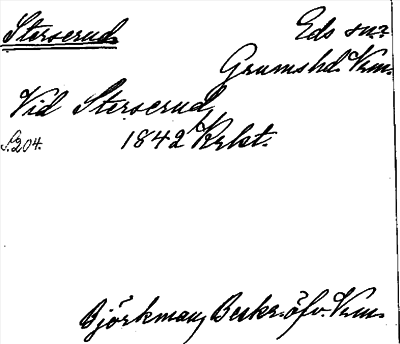 Storserud
Eds sn.
Grums hd. Vrm.
Vid Storserud
S. 204. 1842 Krkt.
Björkman, Beskr. öfv. Vrm.